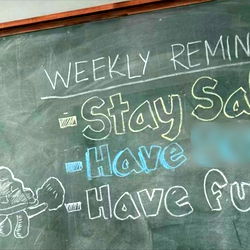 WEEKLY REMIN
- Stay Sa
- Have
- Have fu